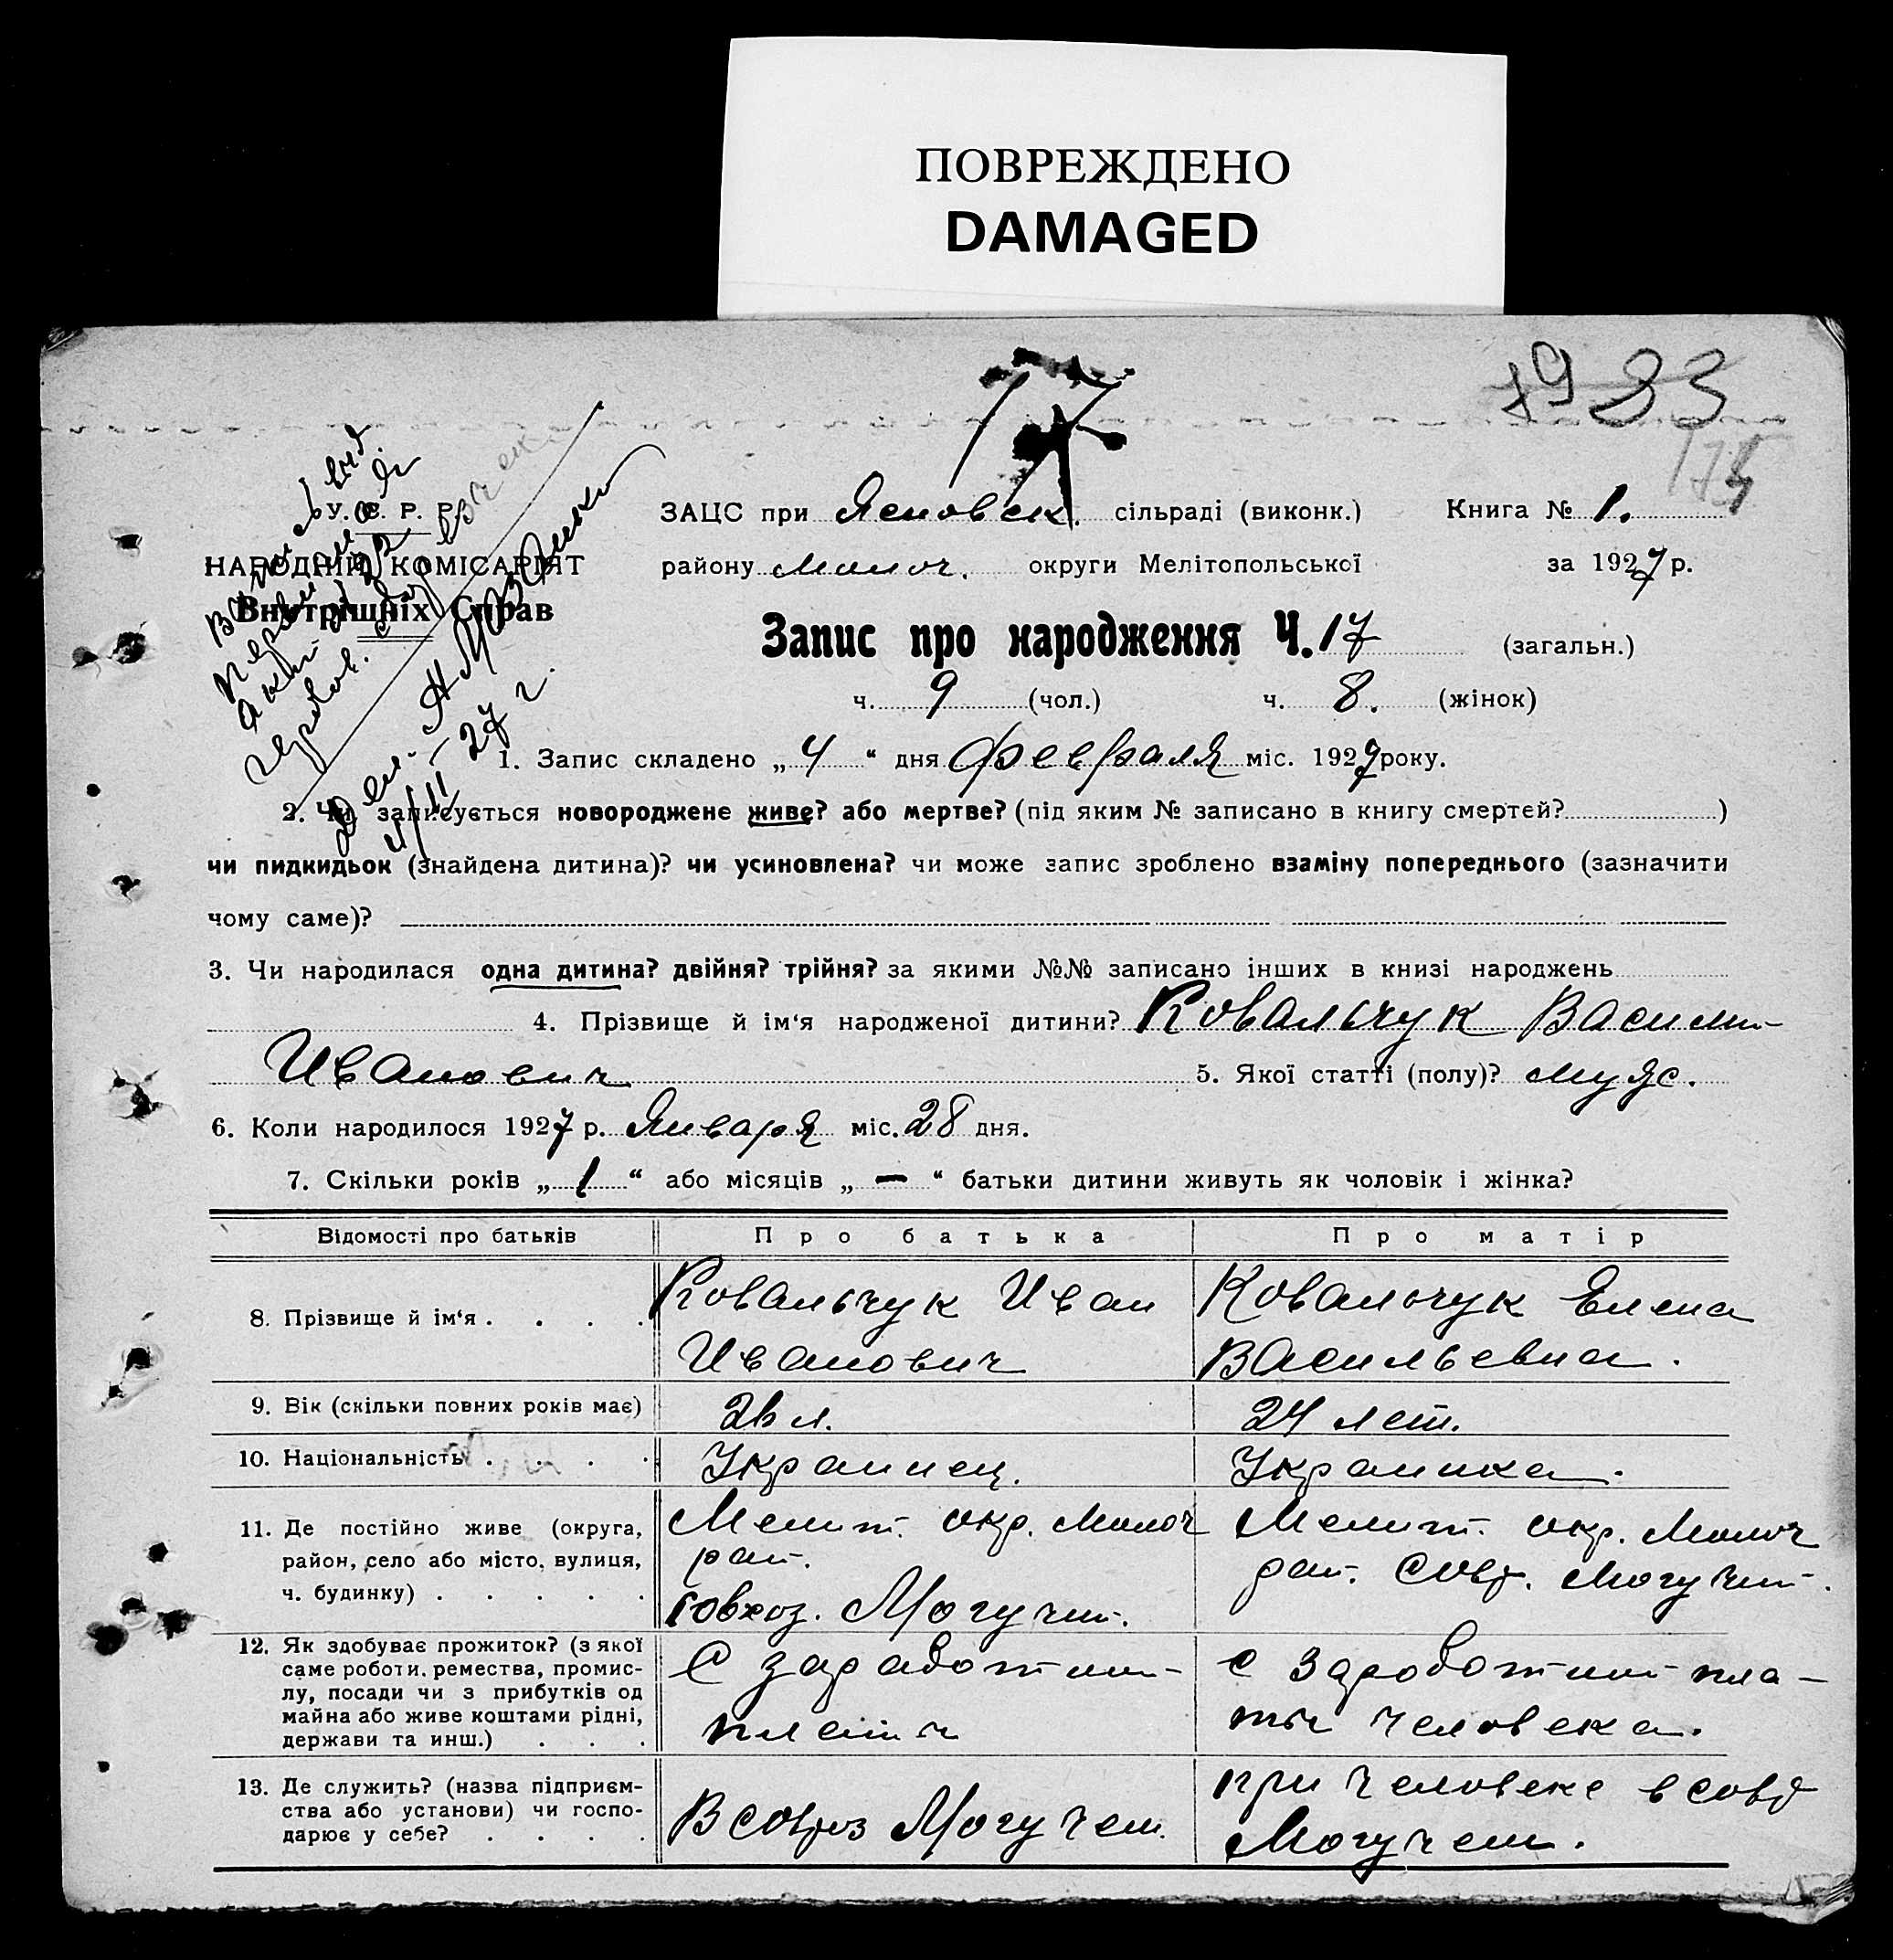 ПОВРЕЖДЕНО
DAMAGED
17
19 83
174
У. С. Р. Р.
НАРОДНІЙ КОМІСАРІЯТ
Внутрішніх Справ
Выпись вид.
4/II – 27 г.
ЗАЦС при Ясновск. сільраді (виконк.) Книга № 1.
району Молоч. округи Мелітопольської за 1927 р.
Запис про народження Ч. 17 (загальн.)
ч. 9 (чол.) ч. 8. (жінок)
1. Запис складено „ 4 “ дня февраля міс. 1927 року.
2. Чи записується новороджене живе? або мертве? (під яким № записано в книгу смертей? )
чи пидкидьок (знайдена дитина)? чи усиновлена? чи може запис зроблено взаміну попереднього (зазначити
чому саме)?
3. Чи народилася одна дитина? двійня? трійня? за якими №№ записано інших в книзі народжень
4. Прізвище й ім‘я народженої дитини? Ковальчук Васили-
Иванович 5. Якої статті (полу)? муж.
6. Коли народилося 1927 р. Января міс. 28 дня.
7. Скільки років „ 1 “ або місяців „ — “ батьки дитини живуть як чоловік і жінка?
Відомості про батьків Про батька Про матір
8. Прізвище й ім‘я . . . . Ковальчук Иван Ковальчук Елена
Иванович Васильевна.
9. Вік (скільки повних років має) 26 л. 24 лет.
10. Національність . . . . Украинец. Украинка.
11. Де постійно живе (округа, Мелит. окр. Молоч Мелит. окр. Молоч
район, село або місто, вулиця, рай. рай. Совх. Могучий.
ч. будинку) . . . . . Совхоз. Могучий.
12. Як здобуває прожиток? (з якої С заработний- С заработний пла-
саме роботи, ремества, промис-
лу, посади чи з прибутків од
майна або живе коштами рідні, платы ты человека.
держави та инш.) . . .
13. Де служить? (назва підприєм- при человеке в совх
ства або установи) чи госпо- В совхоз Могучем. Могучем.
дарює у себе? . . . .